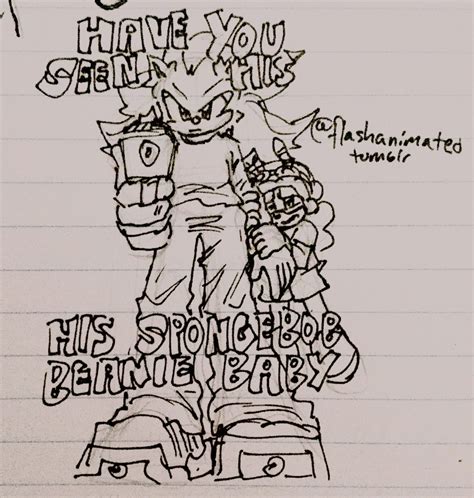 HAVE YOU
SEEN THIS
@flashanimated
tumblr
HIS SPONGEBOB
BEANIE BABY